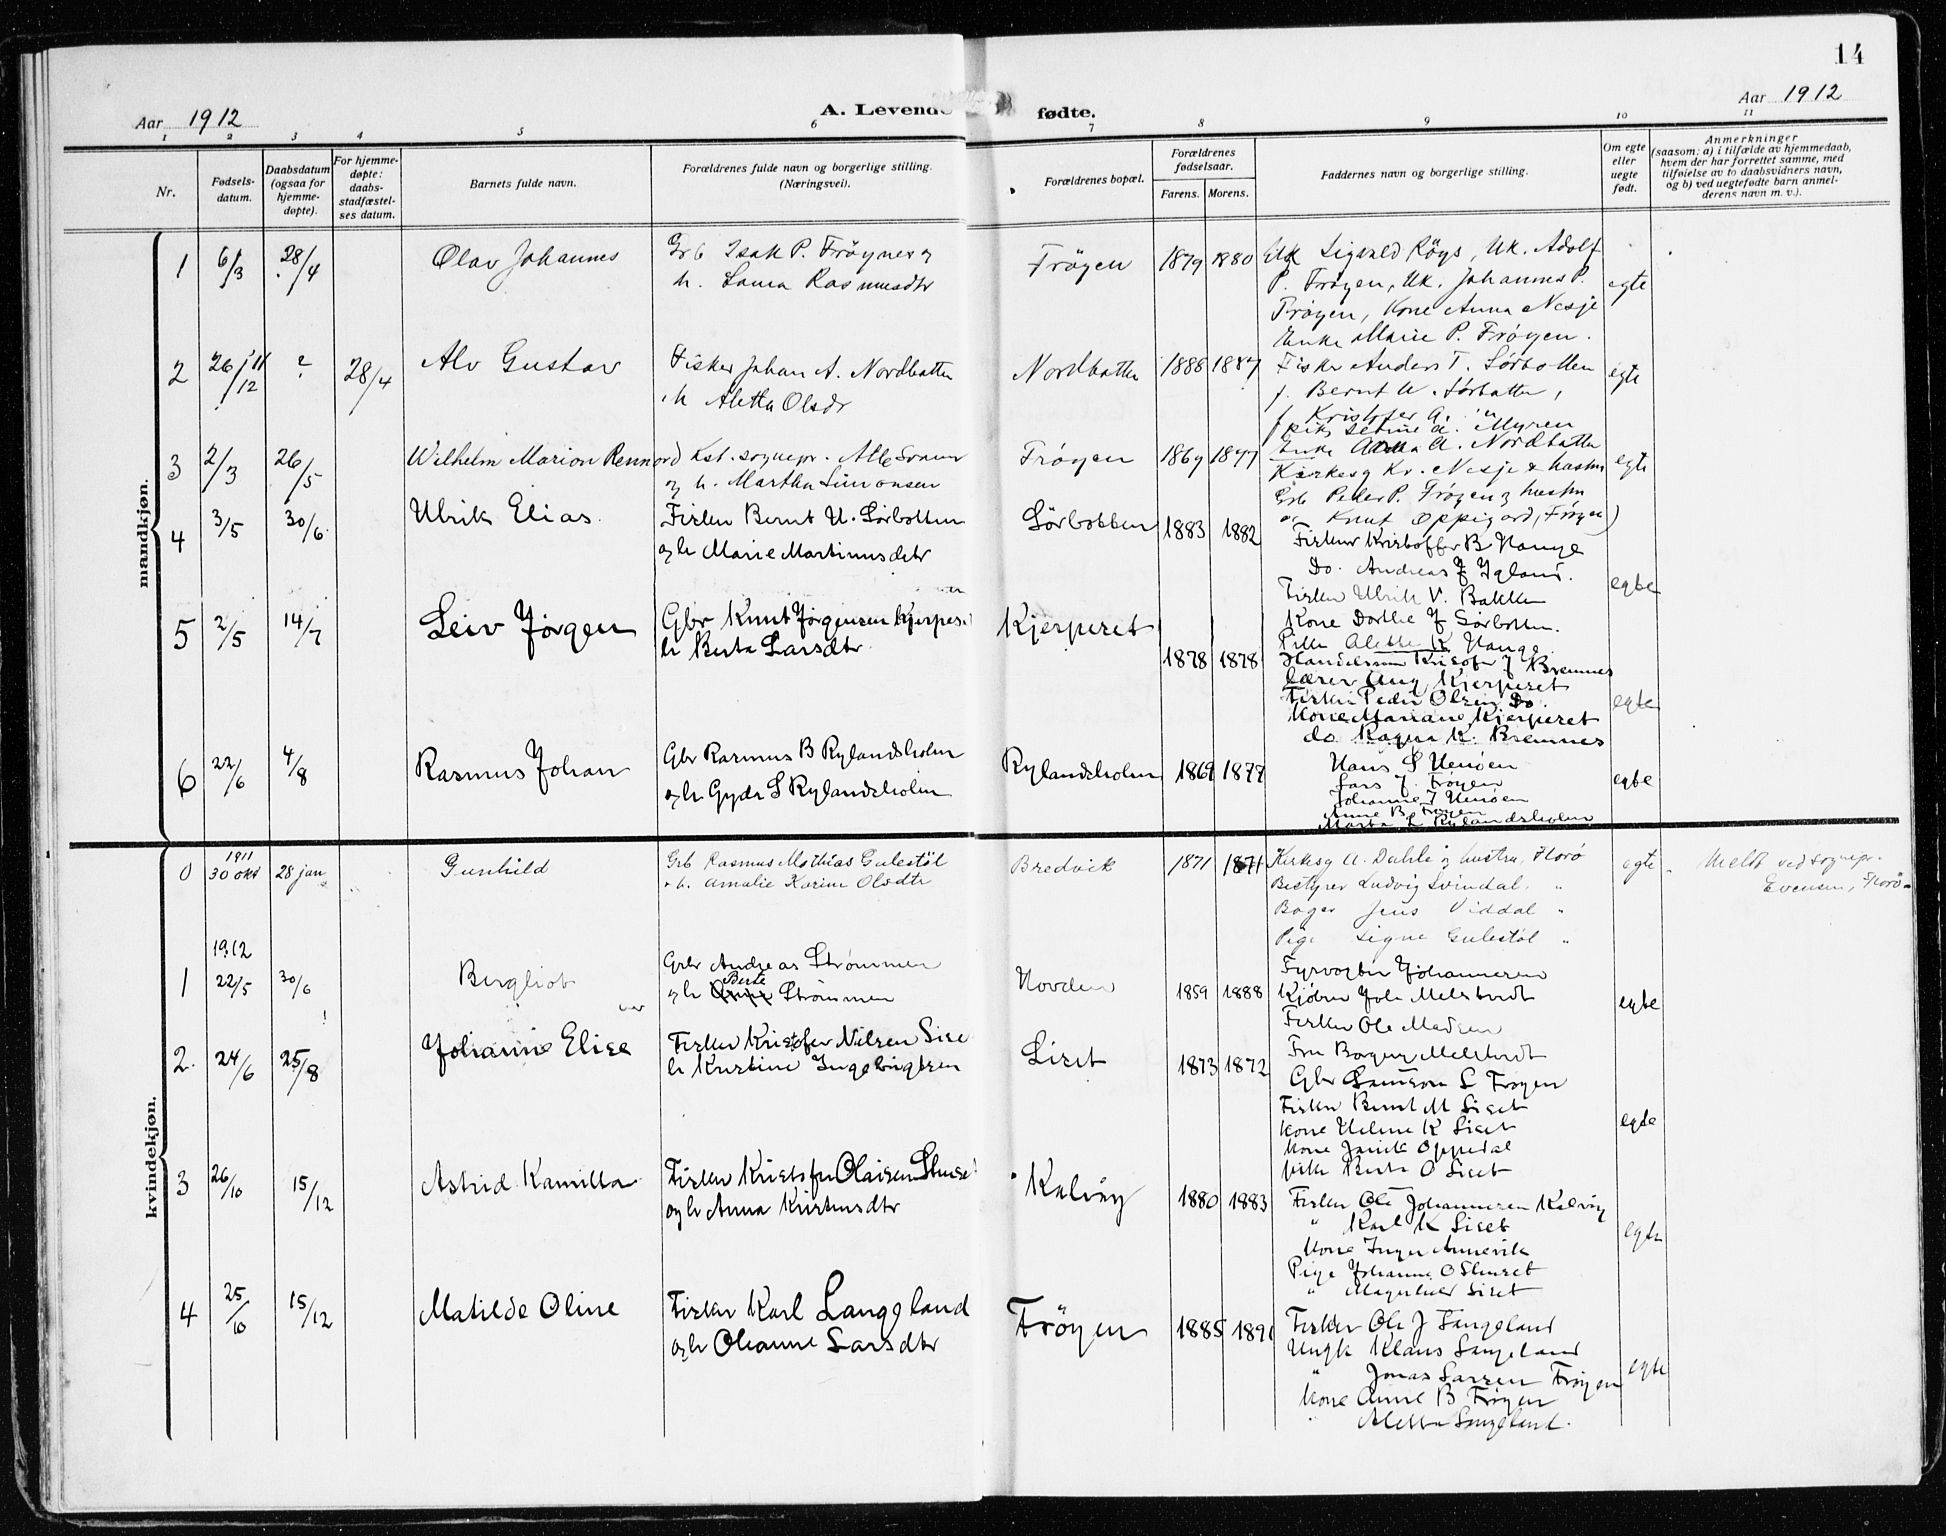 14
Aar 1912
A. Levende fødte.
Aar 1912
1 2 3 4 5 6 7 8 9 10 11
Nr.
Fødsels-
datum.
Daabsdatum
(ogsaa for
hjemme-
døpte).
For hjemme-
døpte:
daabs-
stadfæstel-
ses datum.
Barnets fulde navn.
Forældrenes fulde navn og borgerlige stilling.
(Næringsvei).
Forældrenes bopæl.
Forældrenes
fødselsaar.
Farens. Morens.
Faddernes navn og borgerlige stilling.
Om egte
eller
uegte
født.
Anmerkninger
(saasom: a) i tilfælde av hjemmedaab,
hvem der har forrettet samme, med
tilføielse av to daabsvidners navn,
og b) ved uegtefødte barn anmel-
derens navn m. v.).
mandkjøn.
1 6/3 28/4 Olav Johannes Grb Isak P. Frøyner Frøyen 1879 1880 Uk Sigvald Røys, Uk. Adolf
h. Laura Rasmusdtr P. Frøyen, Uk. Johannes P. egte
Frøyen, Kone Anna Nesje
Enke Marie P. Frøyen.
2 26/12 11 ? 28/4 Alv Gustav Fisker Johan A. Nordbotten Nordbotten 1888 1887 Fisker Anders T. Sørbotten egte
h Aletta Olsdr f. Bernt U. Sørbotten,
f Kristofer A. "
pike Setine A. Myren
Enke Anna A. Nordbotten
3 2/3 26/5 Wilhelm Marion Rennord Kst. sognepr. Frøyen 1869 1877 Kirkesg Kr. Nesje & hustru egte
og h. Martha Simonsen Grb Peder P. Frøyen & hustru
Knut Oppigard, Frøyen)
4 3/5 30/6 Ulrik Elias Fisker Bernt U. Sørbotten Sørbotten 1883 1882 Fisker Kristoffer B Hauge
og h Marie Martinusdtr Do. Andreas J Igland.
Fisker Ulrik V. Bakken egte
Kone Dorthe J Sørbotten.
Pike Alette K Hauge
5 2/5 14/7 Leiv Jørgen Gbr Knut Jørgensen Kjerpeset Kjerpeset 1878 1878 Handelsman Kristofer J Bremnes
h Berta Larsdtr lærer Aug Kjerpeset
Fisker Peder Olsen Do. egte
Kone Mariane Kjerpeset
do Ragna K. Bremnes
6 22/6 4/8 Rasmus Johan Gbr Rasmus B Rylandsholm Rylandsholm 1869 1877 Hans S Henøen egte
og h Gyda S Rylandsholm Lars J. Frøyen
Johanne J Henøen
Anne B Frøyen
Marta L Rylandsholm
kvindekjøn.
0 1911 30 okt 28 jan Gunhild Grb Rasmus Mathias Gulestøl Bredvik 1871 1871 Kirkesg A. Dahle og hustru, Florø egte Meldt ved sognepr.
h. Amalie Karine Olsdtr Bestyrer Ludvig Svindal, " Evensen, Florø
Bager Jens Viddal "
Pige Signe Gulestøl "
1912
1 22/5 30/6 Bergliot Gbr Andreas Strømmen Hovden 1859 1888 Fyrvogter Johannesen
og h Berte Strømmen Kjøbm Joh Melstvedt egte
Fisker Ole Madsen
Fru Borgny Melstvedt
2. 24/6 25/8 Johanne Elise Fisker Kristofer Nilsen Liset Liset 1873 1872 Gbr Samson L Frøyen
h Kristine Ingebrigtsen Fisker Bernt M Liset
Kone Helene K Liset egte
Kone Janik Oppedal
pike Berta O Liset
3 26/10 15/12 Astrid Kamilla Fisker Kristofer Olaisen Kalvøy 1880 1883 Fisker Ole Johannesen Kalvøy
og h Anna Kristensdtr " Karl K Liset egte
Kone Inger Annevik
Pige Johanne O
" Magnhild Liset
4 25/10 15/12 Matilde Oline Fisker Karl Langeland Frøyen 1885 1891 Fisker Ole J Langeland
og h Olianne Larsdtr Ungk Klaus Langeland
" Jonas Larsen Frøyen egte
Kone Anne B Frøyen
" Aletta Langeland.